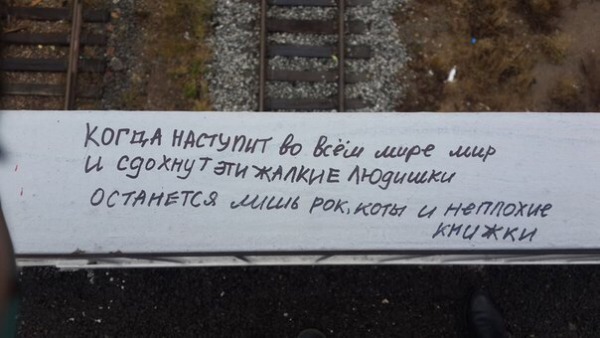 КОГДА НАСТУПИТ во всём мире мир
И СДОХНУТ ЭТИ ЖАЛКИЕ ЛЮДИШКИ
ОСТАНЕТСЯ лишь РОК, КОТЫ И НЕПЛОХИЕ
КНИЖКИ